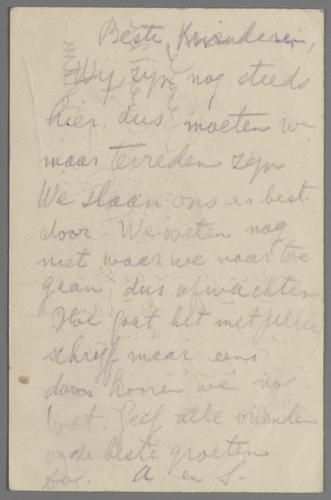 Beste Kinderen,
Wij zijn nog steeds
hier, dus moeten we
maar tevreden zijn
We slaan ons er best
door. We weten nog
niet waar we naar toe
gaan, dus afwachten
Hoe gaat het met jullie
schrijf maar eens
dan horen we nog
wat. Geef alle vrienden
onze beste groeten
Dag. A. en S.